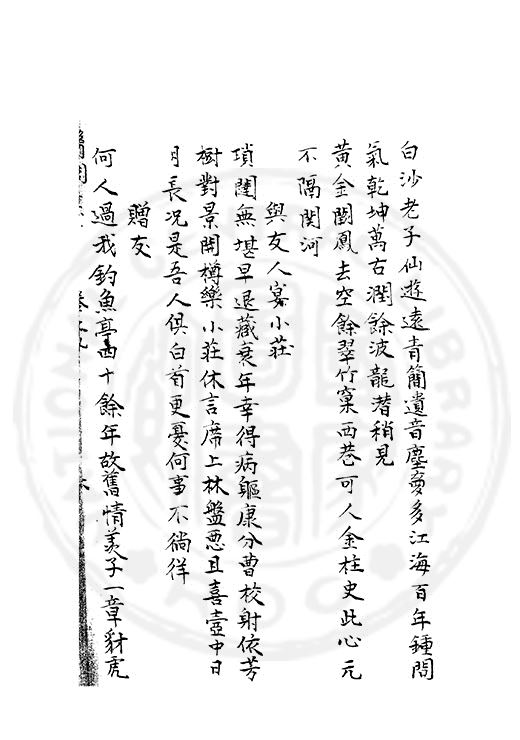 白沙老子仙遊遠青簡遺音塵變多江海百年鍾間
氣乾坤萬古潤餘波龍潜稍見
黃金闕鳳去空餘翠竹窠西巷可人金柱史此心元
不隔関河
與友人宴小莊
瑣闥無堪早退藏衰年幸得病軀康分曹校射依芳
樹對景開樽樂小莊休言席上林盤惡且喜壺中日
月長况是吾人俱白首更憂何事不徜徉
贈友
何人過我釣魚亭四十餘年故舊情羙子一章豺虎